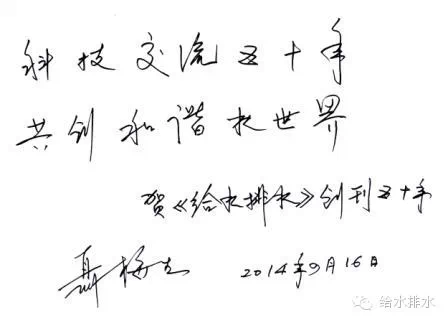 科技交流五十年
共创和谐水世界
贺《给水排水》创刊五十年
聂梅生 2014年9月16日
给水排水